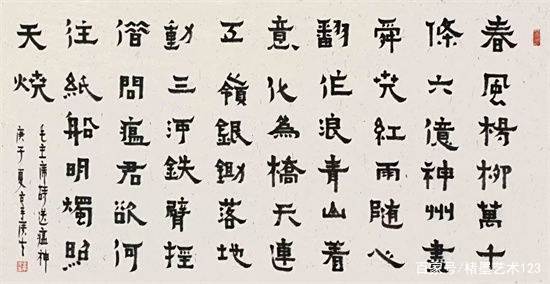 春風楊柳萬千
條六億神州盡
舜堯紅雨隨心
翻作浪青山着
意化為橋天連
五嶺銀鋤落地
動三河鐵臂搖
借問瘟君欲何
往紙船明燭照
天燒
毛主席詩送瘟神
庚子夏
百家号/楮墨艺术123